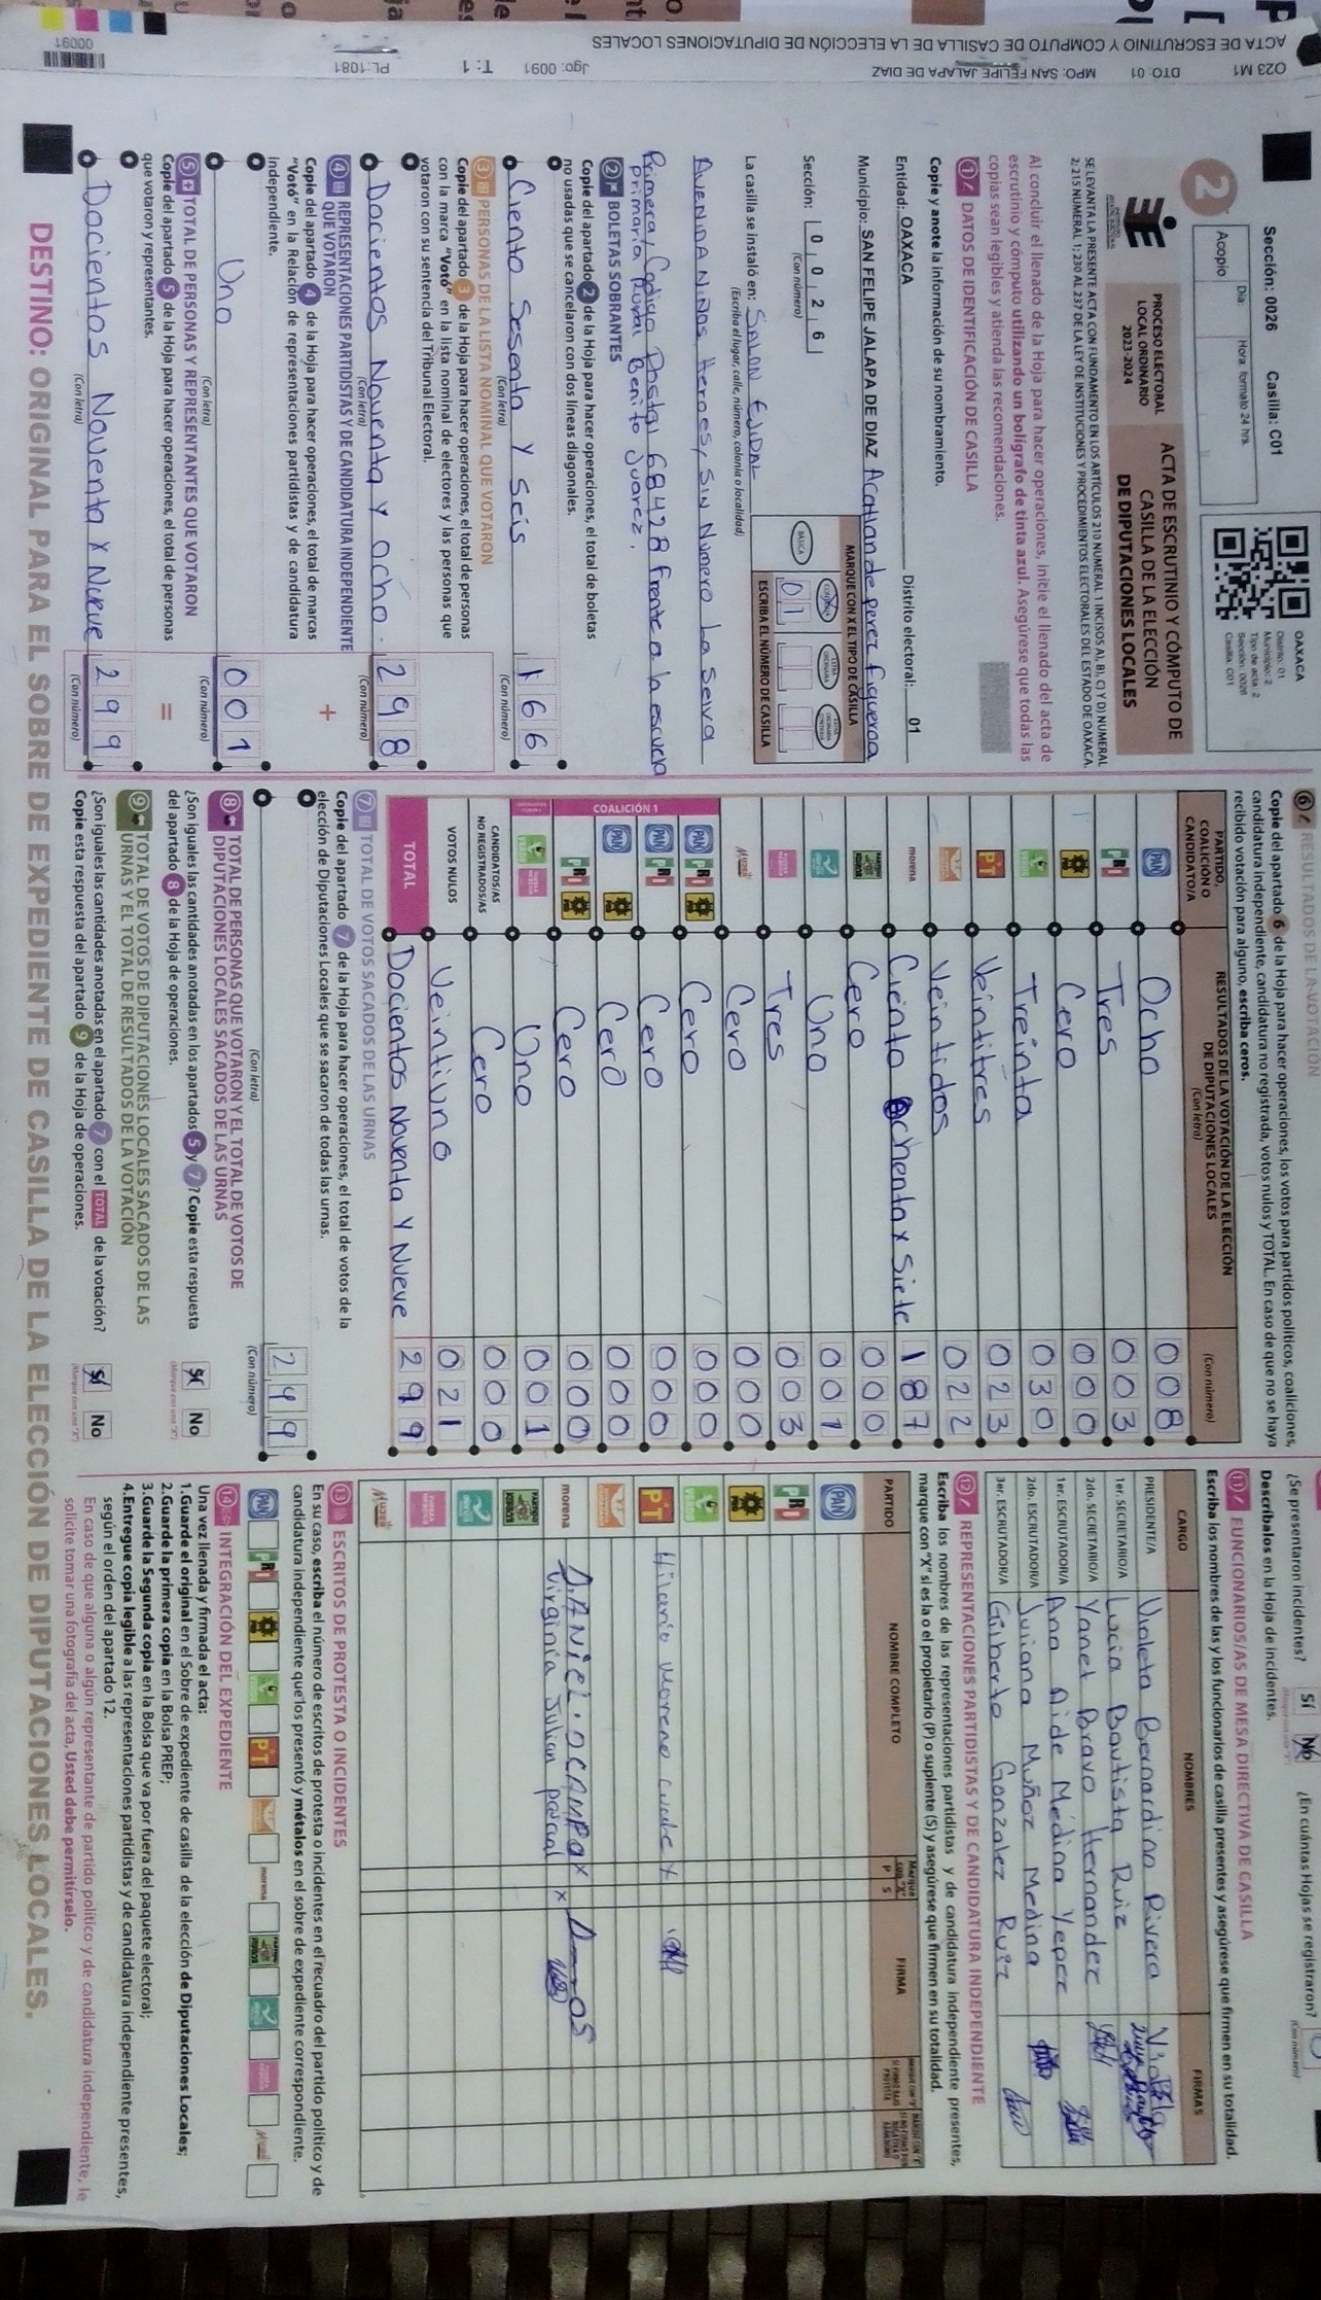 O23 M1 DTO: 01 MPO: SAN FELIPE JALAPA DE DIAZ Jgo: 0091 T: 1 PL: 1081
ACTA DE ESCRUTINIO Y CÓMPUTO DE CASILLA DE LA ELECCIÓN DE DIPUTACIONES LOCALES
00091
Sección: 0026 Casilla: C01
2
Día Hora: formato 24 hrs.
Acopio
OAXACA
Distrito: 01
Municipio: 2
Tipo de acta: 2
Sección: 0026
Casilla: C01
PROCESO ELECTORAL
LOCAL ORDINARIO
2023-2024
ACTA DE ESCRUTINIO Y CÓMPUTO DE
CASILLA DE LA ELECCIÓN
DE DIPUTACIONES LOCALES
SE LEVANTA LA PRESENTE ACTA CON FUNDAMENTO EN LOS ARTÍCULOS 210 NUMERAL 1 INCISOS A), B), C) Y D) NUMERAL
2; 215 NUMERAL 1; 230 AL 237 DE LA LEY DE INSTITUCIONES Y PROCEDIMIENTOS ELECTORALES DEL ESTADO DE OAXACA.
Al concluir el llenado de la Hoja para hacer operaciones, inicie el llenado del acta de
escrutinio y cómputo utilizando un bolígrafo de tinta azul. Asegúrese que todas las
copias sean legibles y atienda las recomendaciones.
1 DATOS DE IDENTIFICACIÓN DE CASILLA
Copie y anote la información de su nombramiento.
Entidad: OAXACA Distrito electoral: 01
Municipio: SAN FELIPE JALAPA DE DIAZ
MARQUE CON X EL TIPO DE CASILLA
BÁSICA
Sección: 0 0 2 6
(Con número)
01
ESCRIBA EL NÚMERO DE CASILLA
La casilla se instaló en: SALON EJIDAL
(Escriba el lugar, calle, número, colonia o localidad)
AVENIDA NIÑOS Heroes, SIN Número La Selva
Primera, Codigo Postal 68428 frente a la escuela
primaria Rural Benito Juarez.
2 BOLETAS SOBRANTES
Copie del apartado 2 de la Hoja para hacer operaciones, el total de boletas
no usadas que se cancelaron con dos líneas diagonales.
Ciento Sesenta Y Seis 166
(Con letra) (Con número)
3 PERSONAS DE LA LISTA NOMINAL QUE VOTARON
Copie del apartado 3 de la Hoja para hacer operaciones, el total de personas
con la marca "Votó" en la lista nominal de electores y las personas que
votaron con su sentencia del Tribunal Electoral.
Docientos Noventa Y Ocho. 298
(Con letra) (Con número)
4 REPRESENTACIONES PARTIDISTAS Y DE CANDIDATURA INDEPENDIENTE
QUE VOTARON +
Copie del apartado 4 de la Hoja para hacer operaciones, el total de marcas
"Votó" en la Relación de representaciones partidistas y de candidatura
independiente.
Uno 001
(Con letra) (Con número)
5 TOTAL DE PERSONAS Y REPRESENTANTES QUE VOTARON
Copie del apartado 5 de la Hoja para hacer operaciones, el total de personas =
que votaron y representantes.
Docientos Noventa Y Nueve 299
(Con letra) (Con número)
6 RESULTADOS DE LA VOTACIÓN
Copie del apartado 6 de la Hoja para hacer operaciones, los votos para partidos políticos, coaliciones,
candidatura independiente, candidatura no registrada, votos nulos y TOTAL. En caso de que no se haya
recibido votación para alguno, escriba ceros.
PARTIDO, COALICIÓN O CANDIDATO/A
RESULTADOS DE LA VOTACIÓN DE LA ELECCIÓN DE DIPUTACIONES LOCALES
(Con letra) (Con número)
PAN Ocho 008
PRI Tres 003
PRD Cero 000
VERDE Treinta 030
PT Veintitres 023
Veintidos 022
morena Ciento Ochenta y Siete 187
Cero 000
Uno 001
Tres 003
Mujer Cero 000
COALICIÓN 1
PAN PRI PRD Cero 000
PAN PRI Cero 000
PAN PRD Cero 000
PRI PRD Cero 000
VERDE Uno 001
CANDIDATOS/AS NO REGISTRADOS/AS Cero 000
VOTOS NULOS Veintiuno 021
TOTAL Docientos Noventa Y Nueve 299
7 TOTAL DE VOTOS SACADOS DE LAS URNAS
Copie del apartado 7 de la Hoja para hacer operaciones, el total de votos de la
elección de Diputaciones Locales que se sacaron de todas las urnas.
299
(Con letra) (Con número)
8 TOTAL DE PERSONAS QUE VOTARON Y EL TOTAL DE VOTOS DE
DIPUTACIONES LOCALES SACADOS DE LAS URNAS
¿Son iguales las cantidades anotadas en los apartados 5 y 7? Copie esta respuesta
del apartado 8 de la Hoja de operaciones.
Sí No
9 TOTAL DE VOTOS DE DIPUTACIONES LOCALES SACADOS DE LAS
URNAS Y EL TOTAL DE RESULTADOS DE LA VOTACIÓN
¿Son iguales las cantidades anotadas en el apartado 7 con el TOTAL de la votación?
Copie esta respuesta del apartado 9 de la Hoja de operaciones.
Sí No
¿Se presentaron incidentes? Sí No ¿En cuántas Hojas se registraron?
Descríbalos en la Hoja de incidentes.
11 FUNCIONARIOS/AS DE MESA DIRECTIVA DE CASILLA
Escriba los nombres de las y los funcionarios de casilla presentes y asegúrese que firmen en su totalidad.
CARGO NOMBRES FIRMAS
PRESIDENTE/A Violeta Bernardino Rivera
1er. SECRETARIO/A Lucia Bautista Ruiz
2do. SECRETARIO/A Yanet Bravo Hernandez
1er. ESCRUTADOR/A Ana Aide Médina Yepez
2do. ESCRUTADOR/A Juiana Muñoz Medina
3er. ESCRUTADOR/A Gilberto Gonzalez Ruiz
12 REPRESENTACIONES PARTIDISTAS Y DE CANDIDATURA INDEPENDIENTE
Escriba los nombres de las representaciones partidistas y de candidatura independiente presentes,
marque con "X" si es la o el propietario (P) o suplente (S) y asegúrese que firmen en su totalidad.
PARTIDO NOMBRE COMPLETO P S FIRMA
PAN
PRI
PRD
VERDE
PT Hilario Moreno X
morena DANIEL OCAMPO X
Virginia Julian pascual X
Mujer
13 ESCRITOS DE PROTESTA O INCIDENTES
En su caso, escriba el número de escritos de protesta o incidentes en el recuadro del partido político y de
candidatura independiente que los presentó y métalos en el sobre de expediente correspondiente.
PAN PRI PRD VERDE PT morena Mujer
14 INTEGRACIÓN DEL EXPEDIENTE
Una vez llenada y firmada el acta:
1.Guarde el original en el Sobre de expediente de casilla de la elección de Diputaciones Locales;
2.Guarde la primera copia en la Bolsa PREP;
3.Guarde la Segunda copia en la Bolsa que va por fuera del paquete electoral;
4.Entregue copia legible a las representaciones partidistas y de candidatura independiente presentes,
según el orden del apartado 12.
En caso de que alguna o algún representante de partido político y de candidatura independiente, le
solicite tomar una fotografía del acta, Usted debe permitírselo.
DESTINO: ORIGINAL PARA EL SOBRE DE EXPEDIENTE DE CASILLA DE LA ELECCIÓN DE DIPUTACIONES LOCALES.